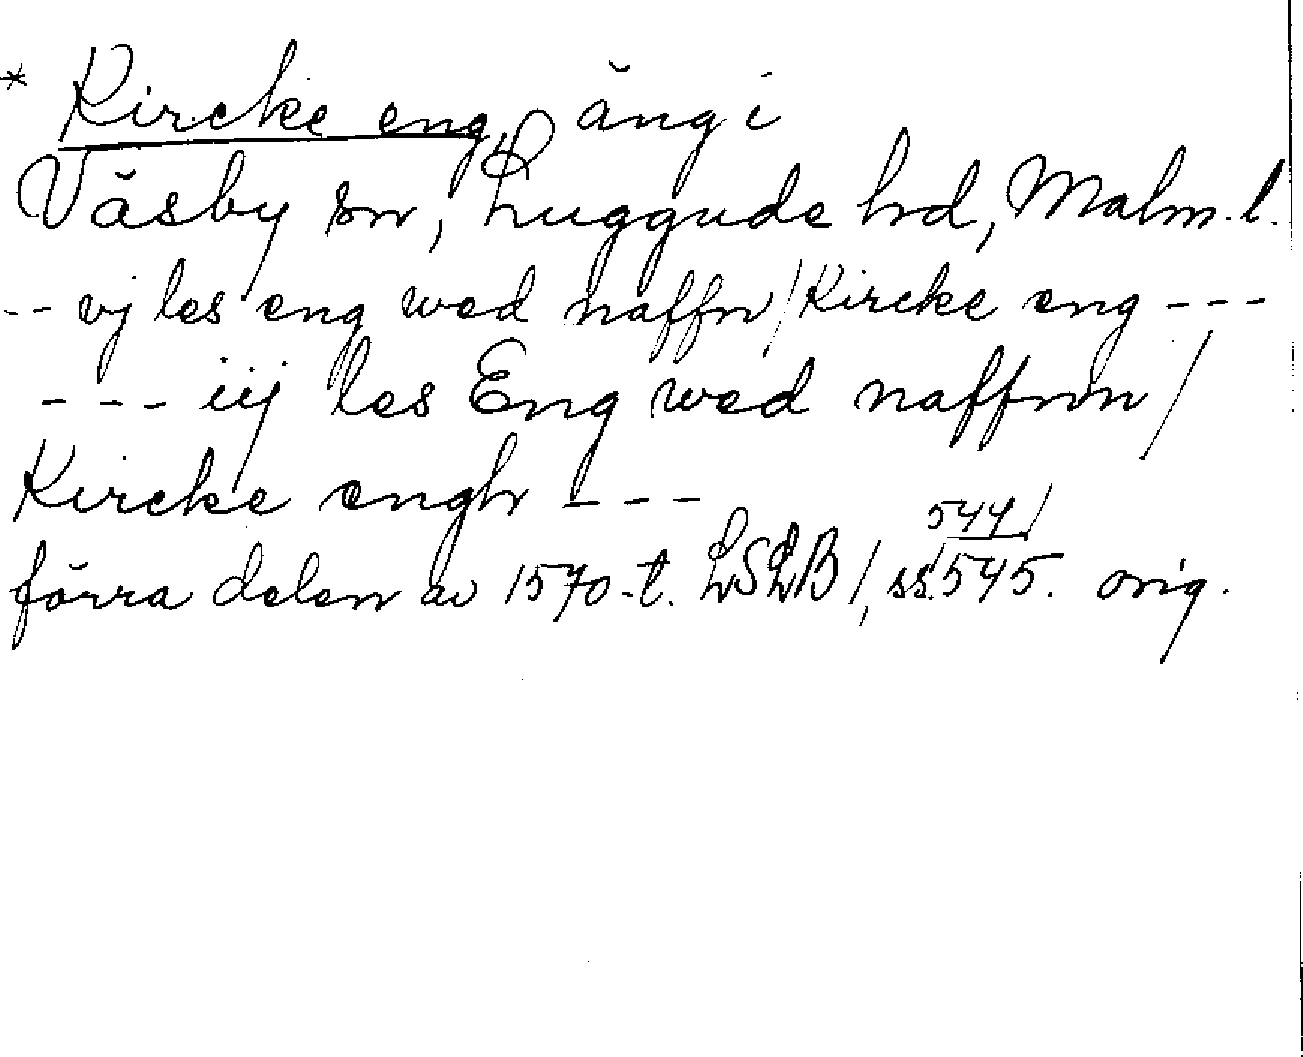 * Kircke eng, äng i
Väsby sn, Luggude hd, Malm. l.
-- vj les eng wed naffn / Kircke eng ---
--- iij les Eng wed naffnn /
Kircke engh ---
förra delen av 1570-t. LSLB 1, ss. 544/545. orig.